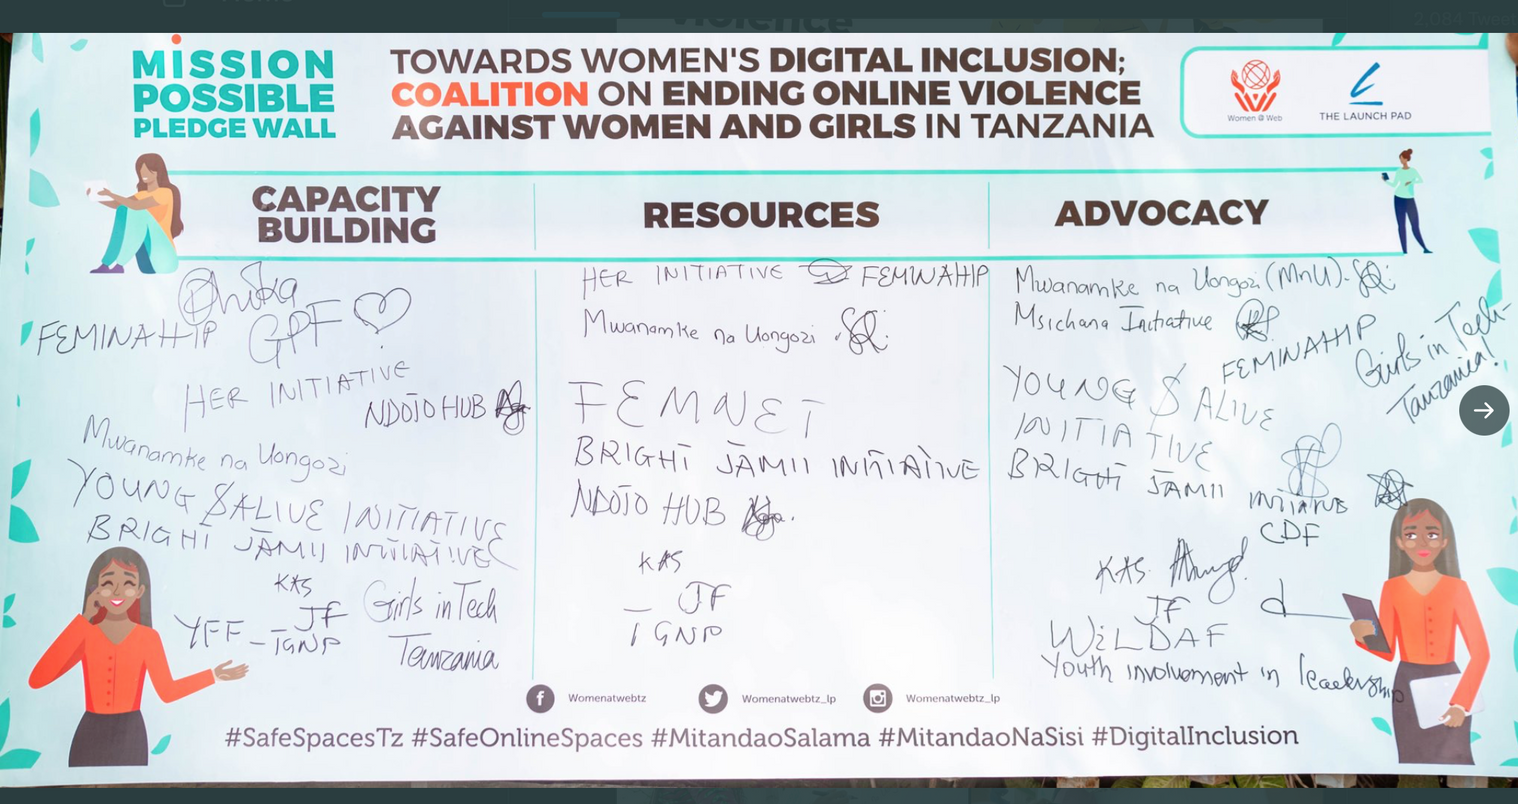 MiSSION
POSSIBLE
PLEDGE WALL
TOWARDS WOMEN'S DIGITAL INCLUSION;
COALITION ON ENDING ONLINE VIOLENCE
AGAINST WOMEN AND GIRLS IN TANZANIA
Women @ Web
THE LAUNCH PAD
CAPACITY
BUILDING
FEMINAHIP
GPF
HER INITIATIVE
NDOTO HUB
Mwanamke na Uongozi
YOUNG & ALIVE INITIATIVE
BRIGHT JAMII INITIATIVE
KAS
JF
YFF - TGNP
Girls in Tech
Tanzania
RESOURCES
HER INITIATIVE
FEMINAHIP
Mwanamke na Uongozi
FEMNET
BRIGHT JAMII INITIATIVE
NDOTO HUB
KAS
JF
TGNP
ADVOCACY
Mwanamke na Uongozi (MnU)
Msichana Initiative
FEMINAHIP
Girls in Tech-
Tanzania!
YOUNG & ALIVE
INITIATIVE
BRIGHT JAMII INITIATIVE
CDF
KAS
JF
WiLDAF
Youth involvement in leadership
Womenatwebtz
Womenatwebtz_lp
Womenatwebtz_lp
#SafeSpacesTz #SafeOnlineSpaces #MitandaoSalama #MitandaoNaSisi #DigitalInclusion